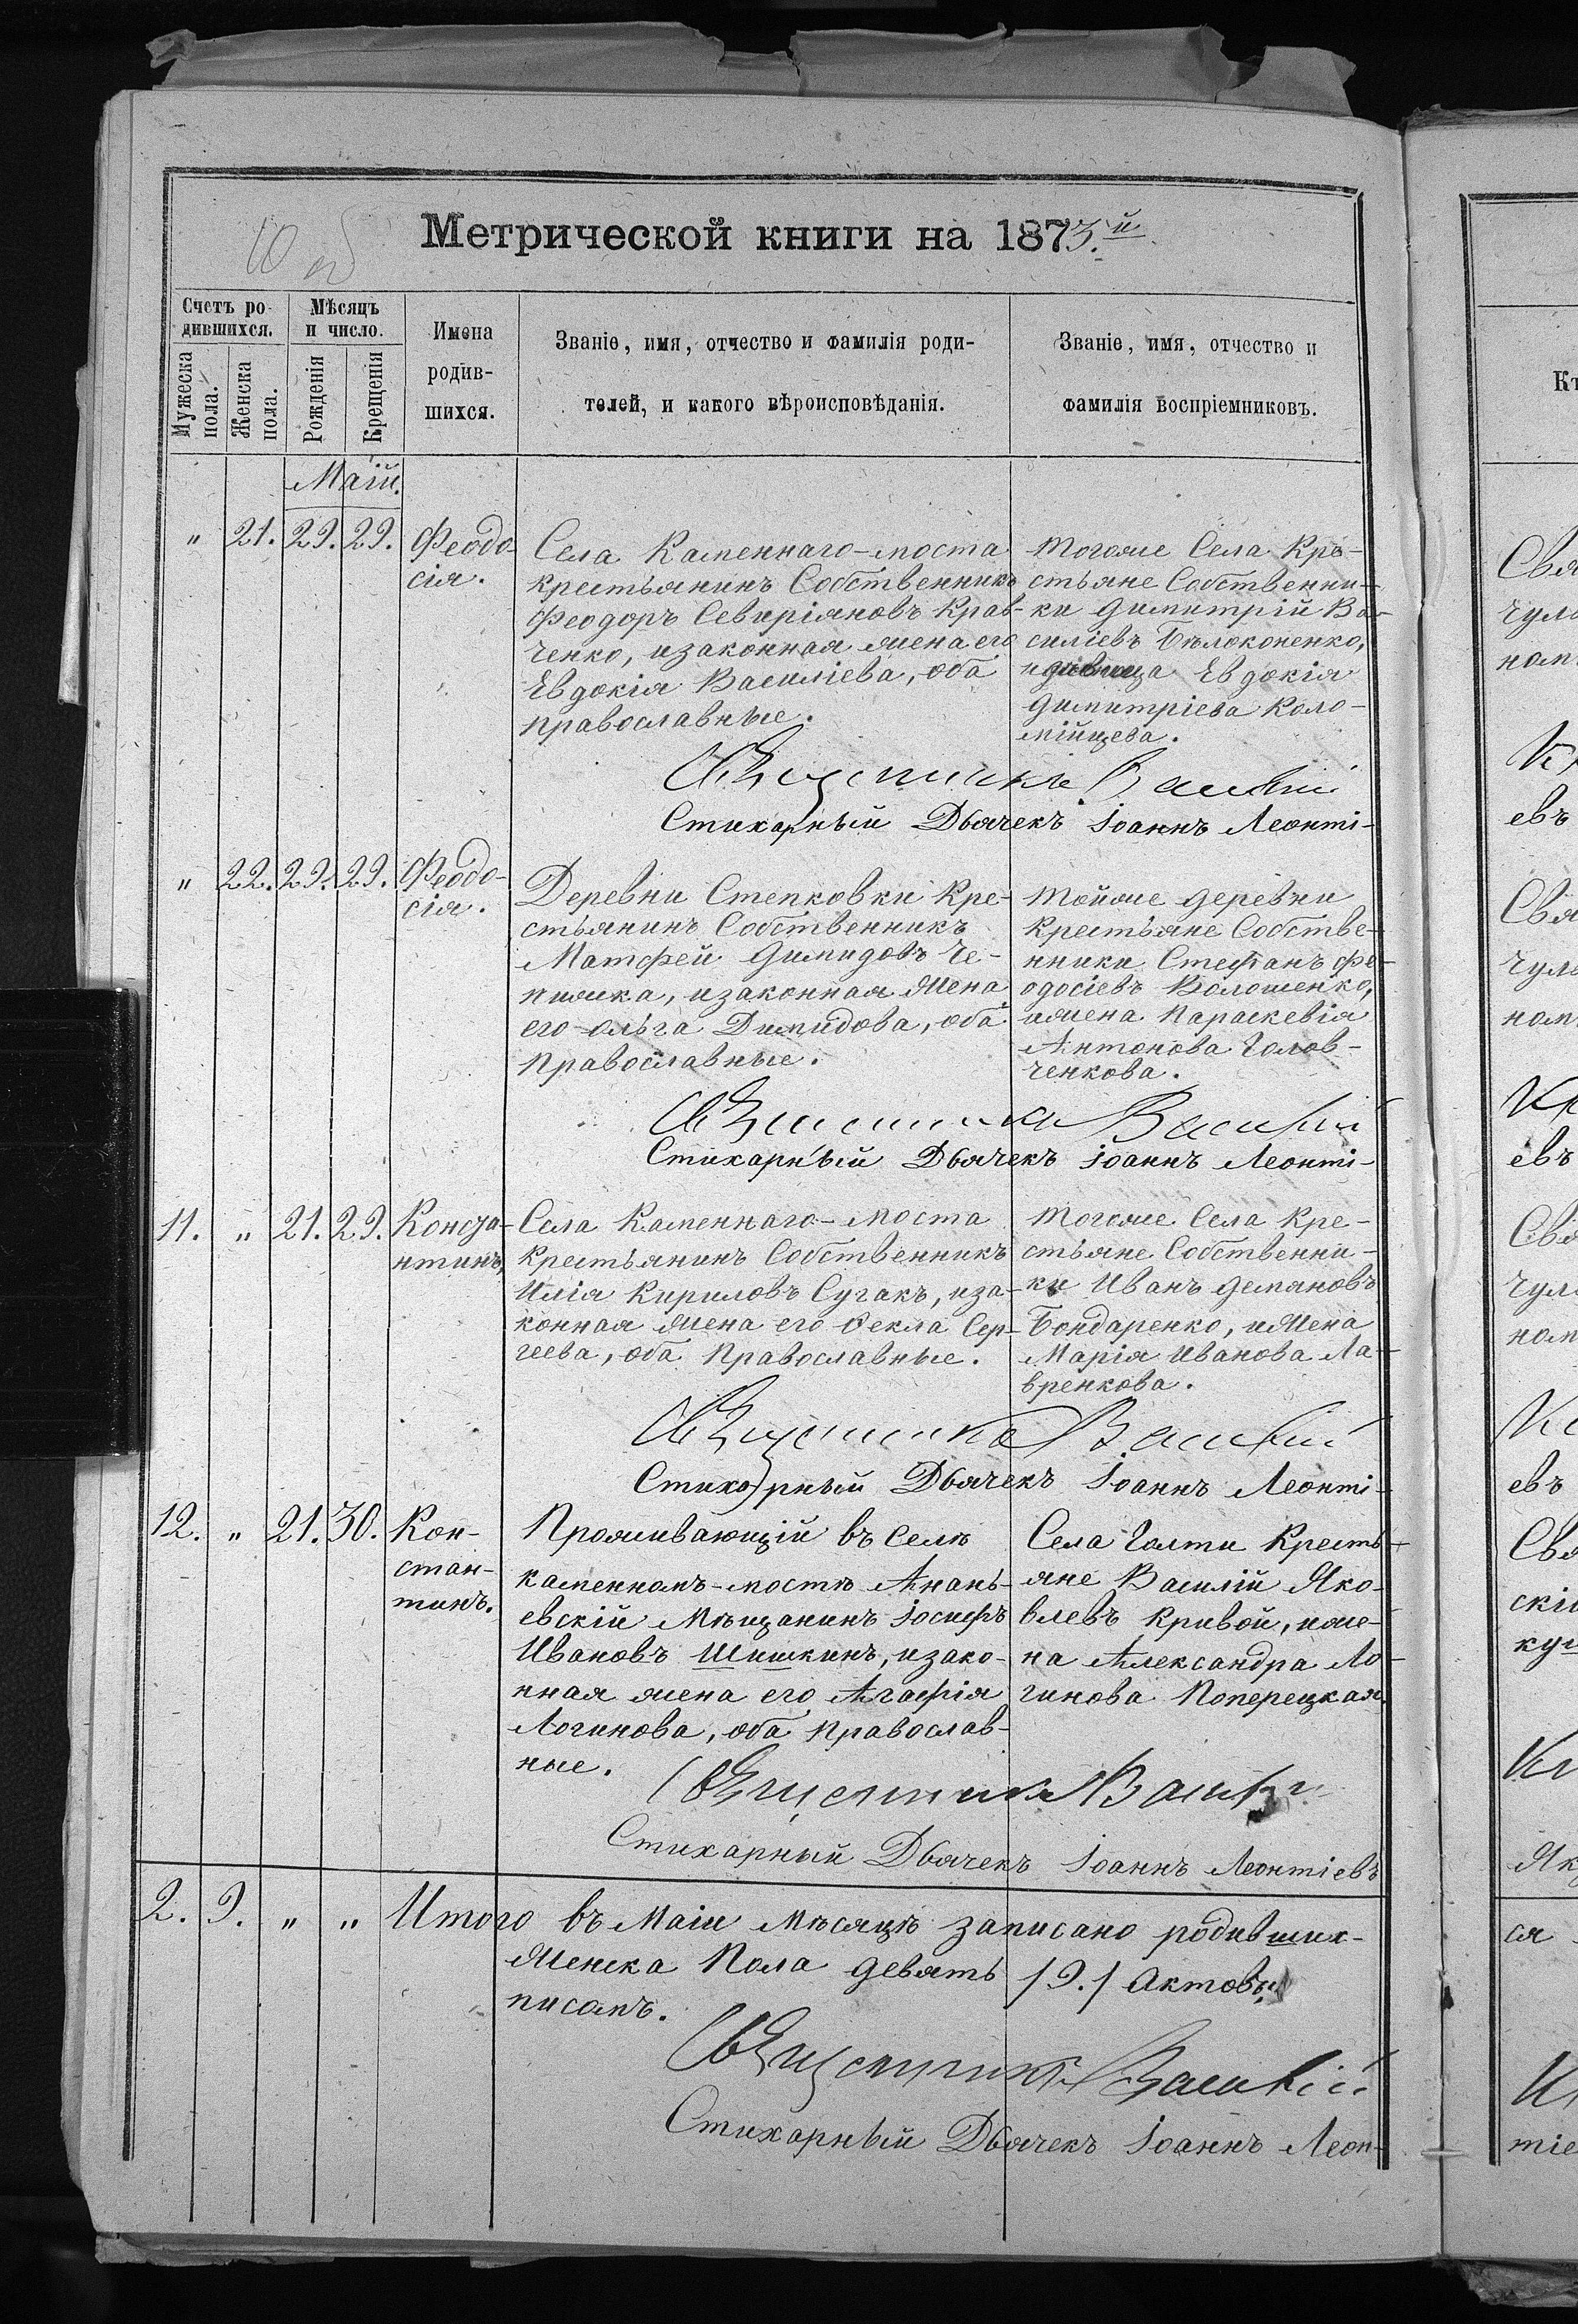 Метрической книги на 1873.й
Счетъ родившихся.
Мѣсяцъ и число.
Мужеска пола.
Женска пола.
Рожденія
Крещенія
Имена родившихся.
Званіе, имя, отчество и фамилія родителей, и какого вѣроисповѣданія.
Званіе, имя, отчество и фамилія воспріемниковъ.
Маій.
" 21. 29. 29.
Феодо-
сія.
Села Каменнаго-моста
крестьянинъ Собственникъ
Феодоръ Севиріяновъ Крав-
ченко, изаконная жена его
Евдокія Василіева, оба
православные.
Тогоже Села Кре-
стьяне Собственни-
ки Димитрій Ва-
силіевъ Бѣлоконенко,
идѣвица Евдокія
Димитріева Коло-
мійцева.
Священникъ Василій
Стихарный Дьячекъ Іоаннъ Леонті-
" 22. 29. 29.
Феодо-
сія.
Деревни Степковки Кре-
стьянинъ Собственникъ
Матфей Димидовъ Че-
пижка, изаконная жена
его Ольга Димидова, оба
Православные.
Тойже деревни
Крестьяне Собстве-
нники Стефанъ Фе-
одосіевъ Волошенко,
ижена Параскевія
Антонова Голов-
ченкова.
Священникъ Василій
Стихарный Дьячекъ Іоаннъ Леонті-
11. " 21. 29.
Конста-
нтинъ,
Села Каменнаго-моста
Крестьянинъ Собственникъ
Илія Кириловъ Сугакъ, иза-
конная жена его Ѳекла Сер-
геева, оба Православные.
Тогоже Села Кре-
стьяне Собственни-
ки Иванъ Демяновъ
Бондаренко, ижена
Марія Иванова Ла-
вренкова.
Священникъ Василій
Стихарный Дьячекъ Іоаннъ Леонті-
12. " 21. 30.
Кон-
стан-
тинъ.
Проживающій въ селѣ
каменномъ-мостѣ Анань-
евскій Мѣщанинъ Іосифъ
Ивановъ Шишкинъ, изако-
нная жена его Агафія
Логинова, оба православ-
ные.
Села Голти Кресть-
яне Василій Яко-
влевъ Кривой, иже-
на Александра Ло-
гинова Поперецкая.
Священникъ Василій
Стихарный Дьячекъ Іоаннъ Леонтіевъ
2. 9. " " Итого въ Маіи Мѣсяцѣ записано родивших-
Женска Пола девять /9./ Актовъ
писанъ.
Священникъ Василій
Стихарный Дьячекъ Іоаннъ Леон-
Свя
чуль
ном
евъ
Свя
чуль
ном
евъ
Свя
чул
ном
евъ
Свя
скі
куш
Як
ся
тіе